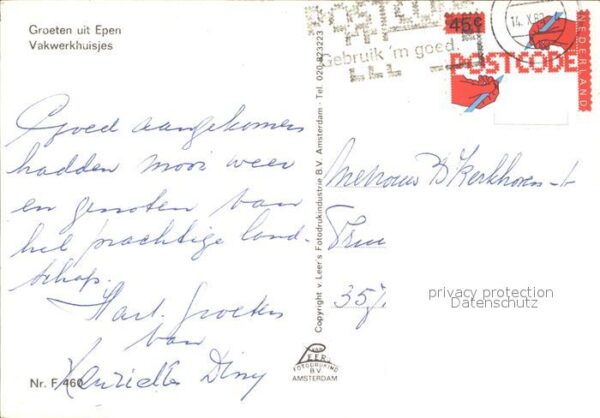 Groeten uit Epen
Vakwerkhuisjes
Goed aangekomen
hadden mooi weer
en genoten van
het prachtige land-
schap.
Hart. Groeten
van
Diny
Nr. F 460
Copyright v. Leer's Fotodrukindustrie B.V. Amsterdam - Tel. 020-823223
VAN
LEER
FOTODRUKIND
B.V.
AMSTERDAM
POSTCODE
Gebruik 'm goed.
14.X
45c
POSTCODE
NEDERLAND
Mevrouw
357
privacy protection
Datenschutz